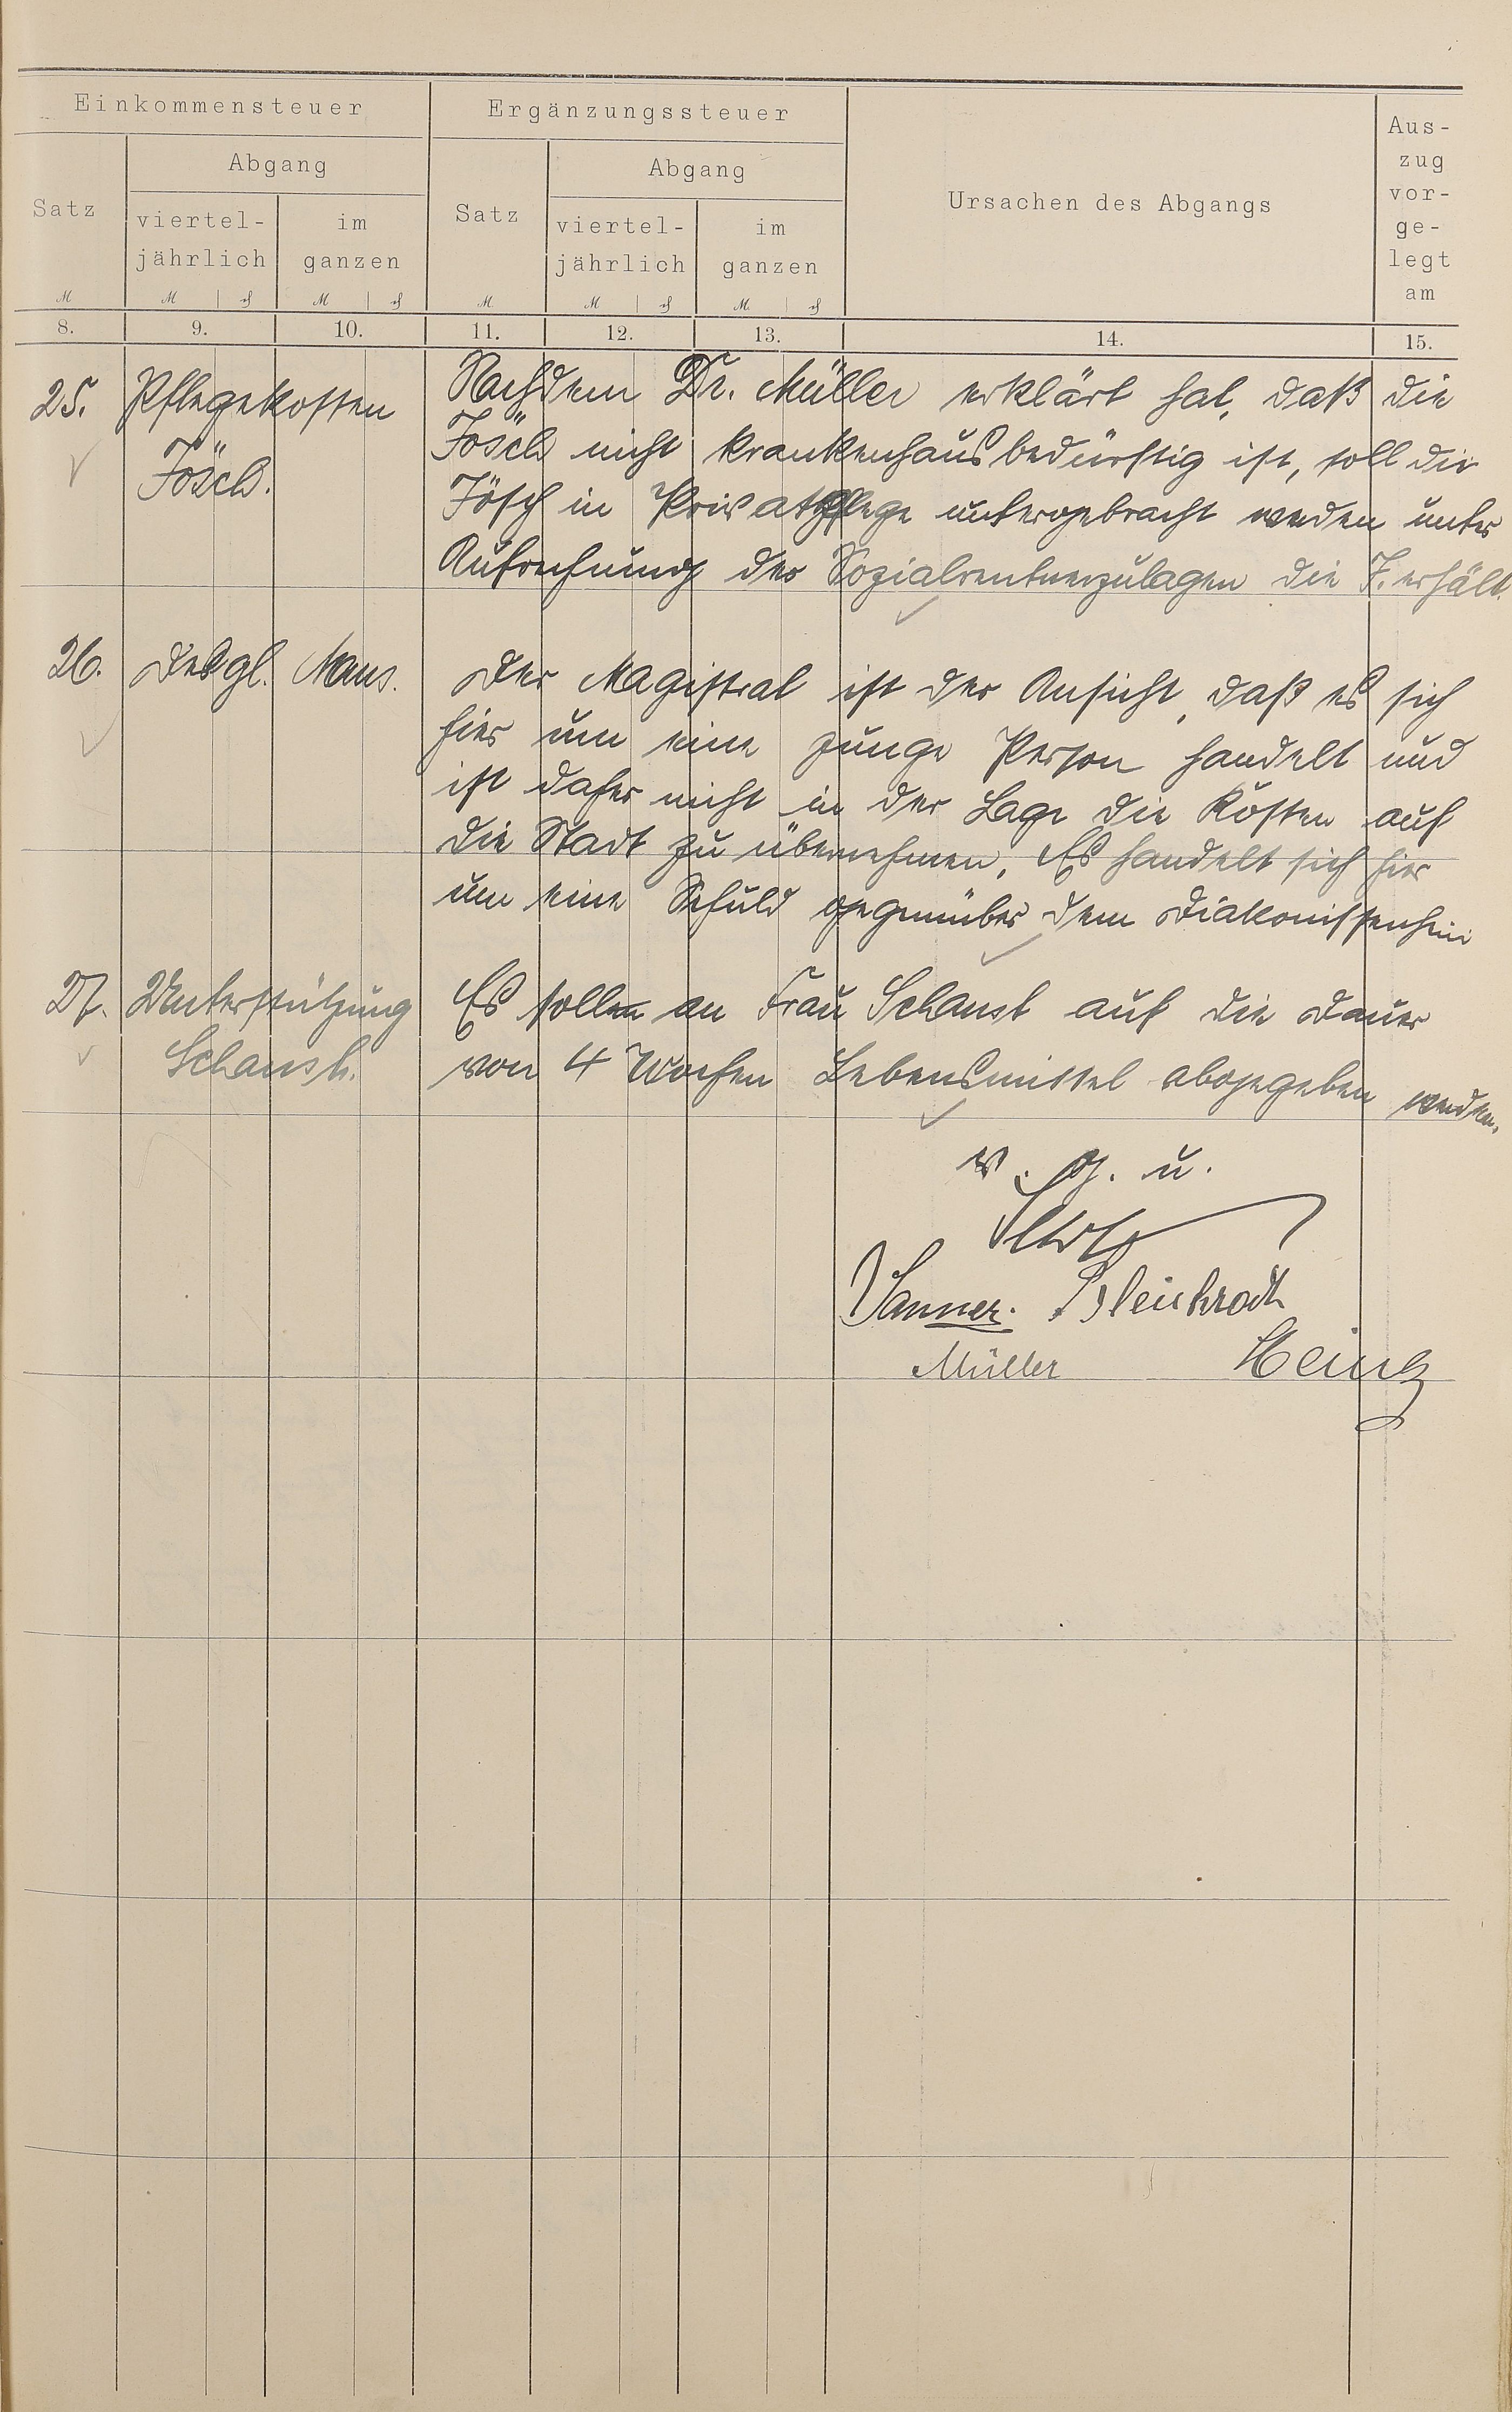 Einkommensteuer
Ergänzungssteuer
Ursachen des Abgangs
Aus-
zug
vor-
ge-
legt
am
Satz
Abgang
viertel-
jährlich
im
ganzen
Satz
Abgang
viertel-
jährlich
im
ganzen
8. 9. 10. 11. 12. 13. 14. 15.
25. Pflegekosten
Jösch.
Nachdem Dr. Müller erklärt hat, daß die
Jösch nicht krankenhausbedürftig ist, soll die
Jösch in Privatpflege untergebracht werden unter
Aufrechnung der Sozialrentnerzulagen die J. erhält.
26. Desgl. Maus.
Der Magistrat ist der Ansicht, daß es sich
hier um eine junge Person handelt und
ist daher nicht in der Lage die Kosten auf
die Stadt zu übernehmen. Es handelt sich hier
um eine Schuld gegenüber dem Diakonissenheim
27. Unterstützung
Schaust.
Es sollen an Frau Schaust auf die Dauer
von 4 Wochen Lebensmittel abgegeben werden.
v. g. u.
Wanner. Bleichrodt
Müller Heinz